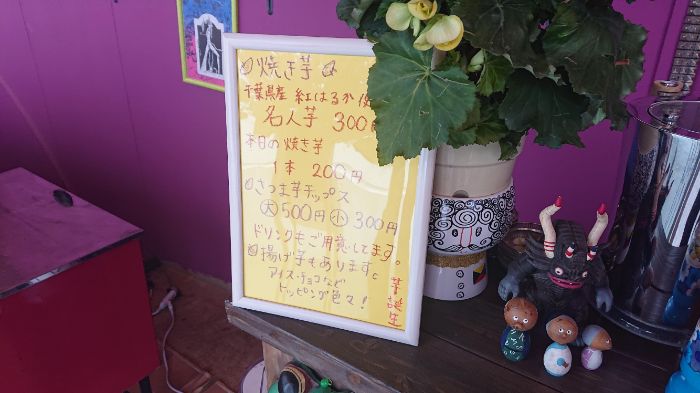 焼き芋
千葉県産 紅はるか
名人芋 300
本日の焼き芋
1本 200円
さつま芋チップス
大 500円 小 300円
ドリンクもご用意してます。
揚げ芋もあります。
アイス・チョコなど
トッピング色々!
芋誕生